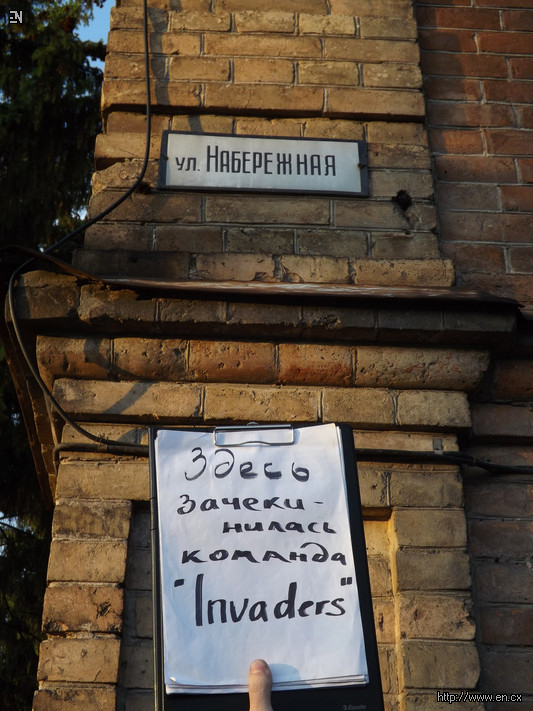 EN
ул. НАБЕРЕЖНАЯ
Здесь
зачеки-
нилась
команда
"Invaders"
http://www.en.cx